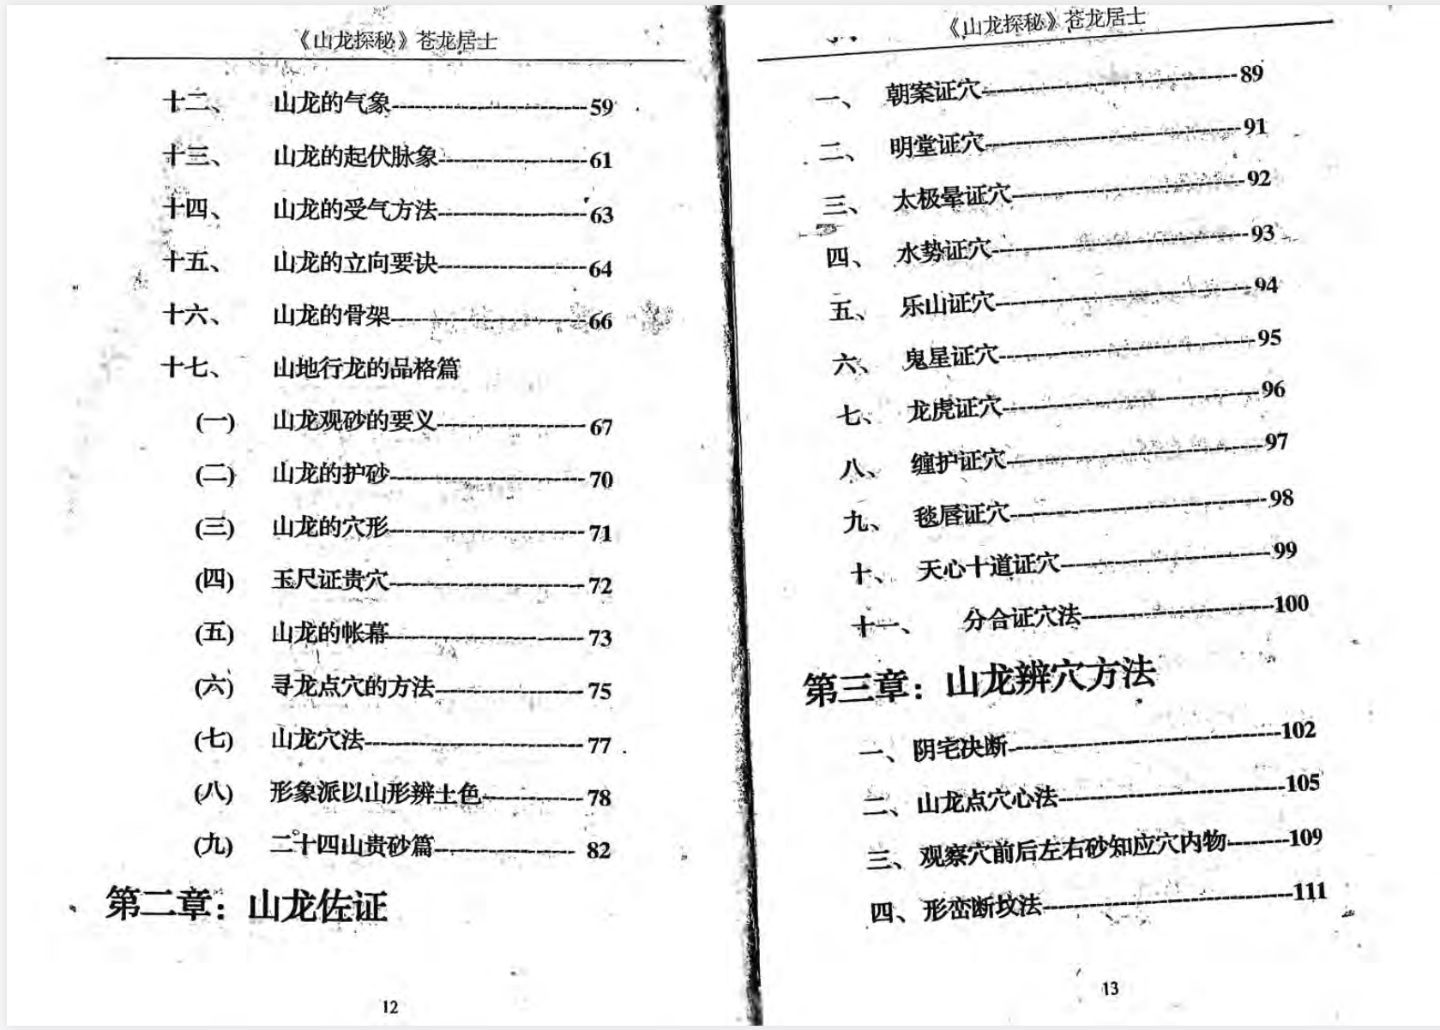 《山龙探秘》苍龙居士
十二、 山龙的气象----------59
十三、 山龙的起伏脉象----------61
十四、 山龙的受气方法----------63
十五、 山龙的立向要诀----------64
十六、 山龙的骨架----------66
十七、 山地行龙的品格篇
(一) 山龙观砂的要义----------67
(二) 山龙的护砂----------70
(三) 山龙的穴形----------71
(四) 玉尺证贵穴----------72
(五) 山龙的帐幕----------73
(六) 寻龙点穴的方法----------75
(七) 山龙穴法----------77
(八) 形象派以山形辨土色----------78
(九) 二十四山贵砂篇----------82
第二章：山龙佐证
12
《山龙探秘》苍龙居士
一、 朝案证穴----------89
二、 明堂证穴----------91
三、 太极晕证穴----------92
四、 水势证穴----------93
五、 乐山证穴----------94
六、 鬼星证穴----------95
七、 龙虎证穴----------96
八、 缠护证穴----------97
九、 毯唇证穴----------98
十、 天心十道证穴----------99
十一、 分合证穴法----------100
第三章：山龙辨穴方法
一、阴宅决断----------102
二、山龙点穴心法----------105
三、观察穴前后左右砂知应穴内物----------109
四、形峦断坟法----------111
13